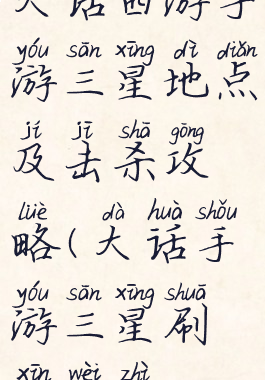 大话西游手
yóu sān xīng dì diǎn
游三星地点
jí jī shā gōng
及击杀攻
lüè dà huà shǒu
略(大话手
yóu sān xīng shuā
游三星刷
xīn wèi zhì